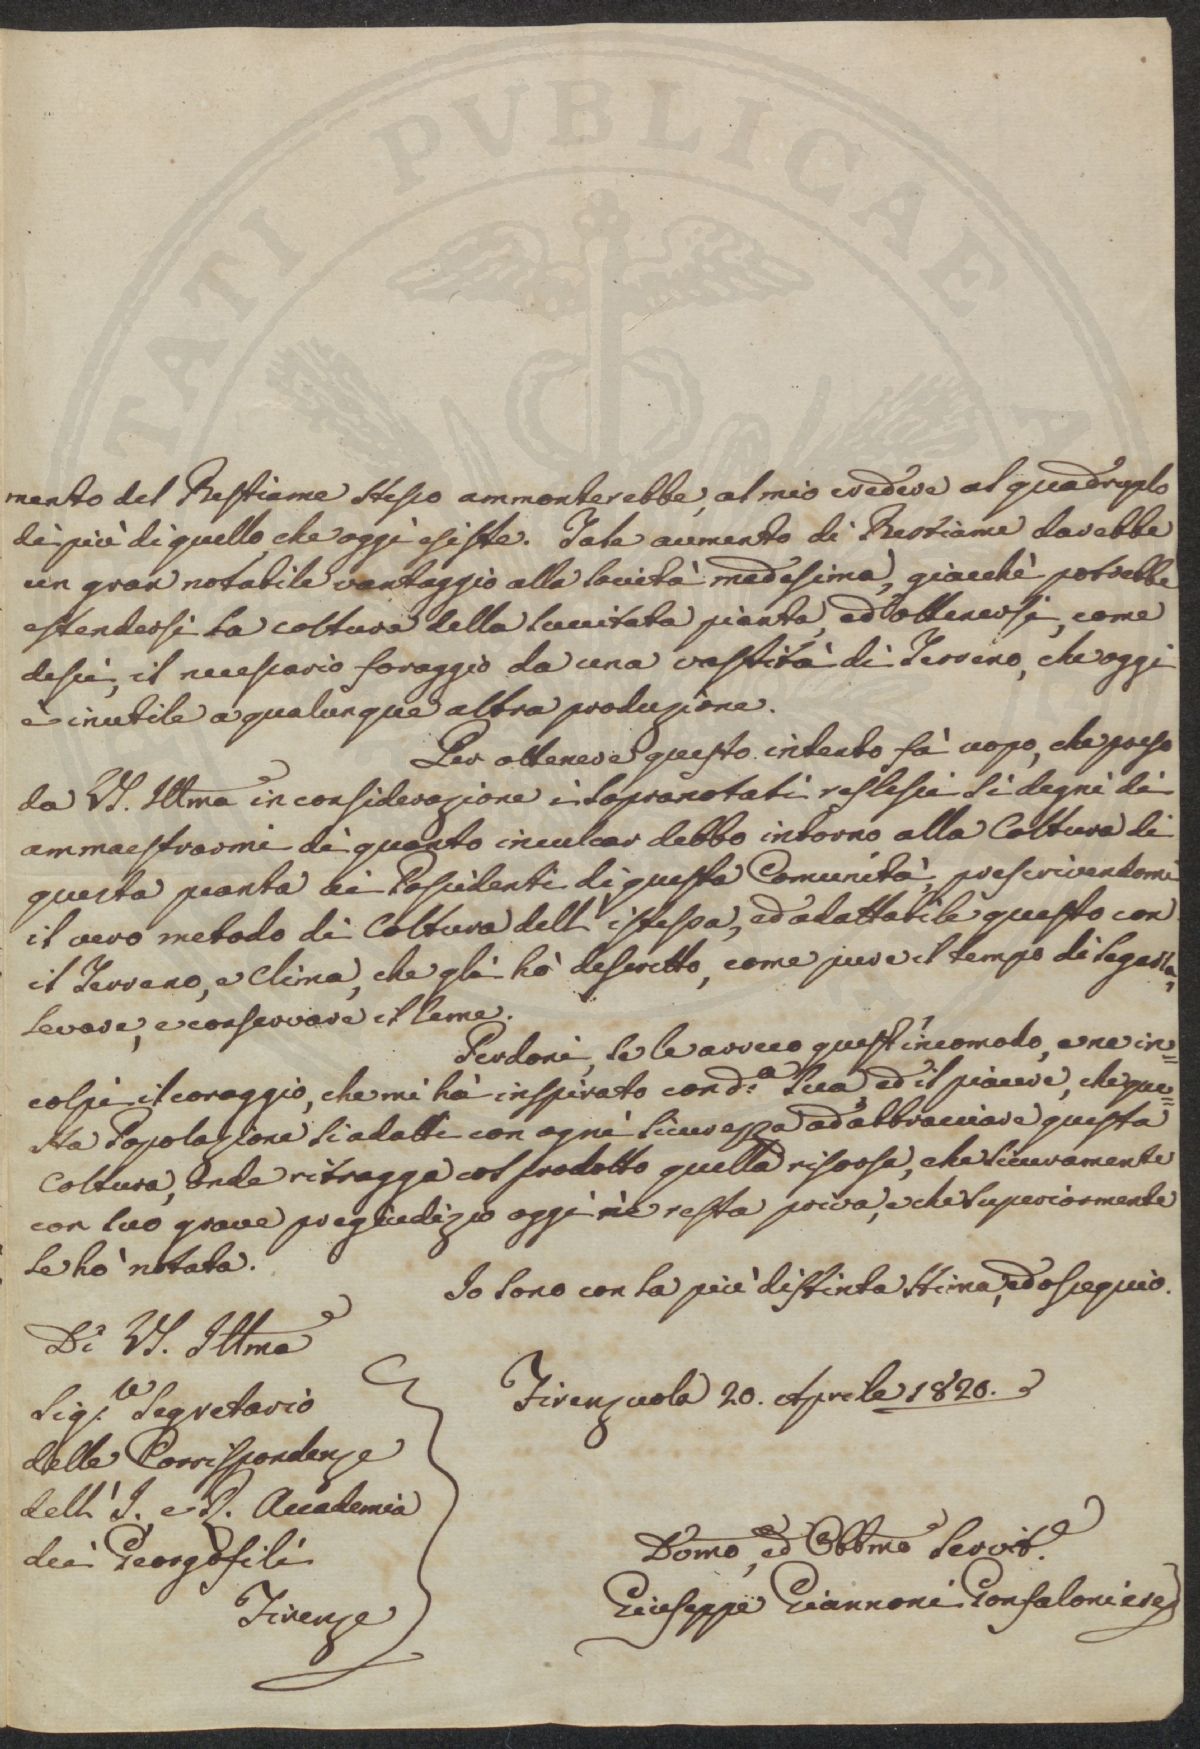 PUBLICAE
mento del Bestiame stesso ammonterebbe, al mio credere al quadruplo
di più di quello, che oggi esiste. Tale aumento di Bestiame darebbe
un gran notabile vantaggio alla Società medesima, giacchè potrebbe
estendersi la coltura della succitata pianta, ed ottenersi, come
dissi, il necessario foraggio da una vastità di Terreno, che oggi
è inutile a qualunque altra produzione.
Per ottenere questo intento fà uopo, che preso
da VS. Illma in considerazione i sopranotati riflessi si degni di
ammaestrarmi di quanto inculcar debbo intorno alla Coltura di
questa pianta ai Possidenti di questa Comunità, prescrivendomi
il vero metodo di Coltura dell' istessa, ed adattabile questo con
il Terreno, e Clima, che glì hò descritto, come pure il tempo di segarla,
levare, e conservare il seme.
Perdoni, se le arreco quest' incomodo, e ne in=
colpi il coraggio, che mi hà inspirato la sua, ed il piacere, che que=
sta Popolazione si adatti con ogni sicurezza ad abbracciare questa
Coltura, onde ritragga col prodotto quella risorsa, che sicuramente
con suo grave pregiudizio oggi nè resta priva, e che superiormente
le hò notata.
Io sono con la più distinta stima, ed ossequio.
Di VS. Illma
Sig.re Segretario
delle Corrispondenze
dell' I. e R. Accademia
dei Georgofili
Firenze
Firenzuola 20. Aprile 1820.
Dvmo, ed Obbmo Servit.e
Giuseppe Giannoni Gonfaloniere